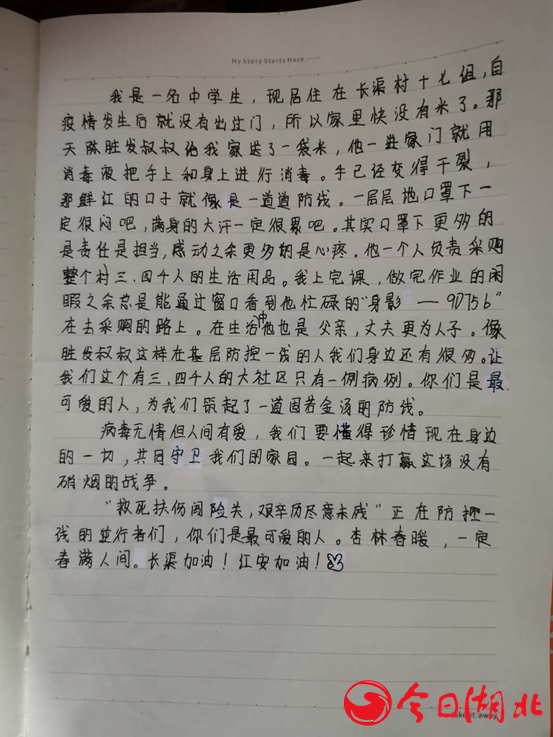 My Story Starts Here
我是一名中学生，现居住在长渠村十七组，自
疫情发生后就没有出过门，所以家里快没有米了。那
天陈胜发叔叔给我家送了一袋米，他一进家门就用
消毒液把手上和身上进行消毒。手已经变得干裂，
那鲜红的口子就像是一道道防线。一层层地口罩下一
定很闷吧，满身的大汗一定很累吧。其实口罩下更多的
是责任是担当，感动之余更多的是心疼。他一个人负责采购
整个村三、四千人的生活用品。我上完课，做完作业的闲
暇之余总是能通过窗口看到他忙碌的"身影——9D756"
在去采购的路上。在生活中他也是父亲，丈夫更为人子。像
胜发叔叔这样在基层防控一线的人我们身边还有很多。让
我们这个有三、四千人的大社区只有一例病例。你们是最
可爱的人，为我们筑起了一道固若金汤的防线。
病毒无情但人间有爱，我们要懂得珍惜现在身边
的一切，共同守卫我们的家园。一起来打赢这场没有
硝烟的战争。
"救死扶伤闯险关，艰辛历尽意未残"正在防控一
线的逆行者们，你们是最可爱的人。杏林春暖，一定
春满人间。长渠加油！江安加油！
今日湖北
away